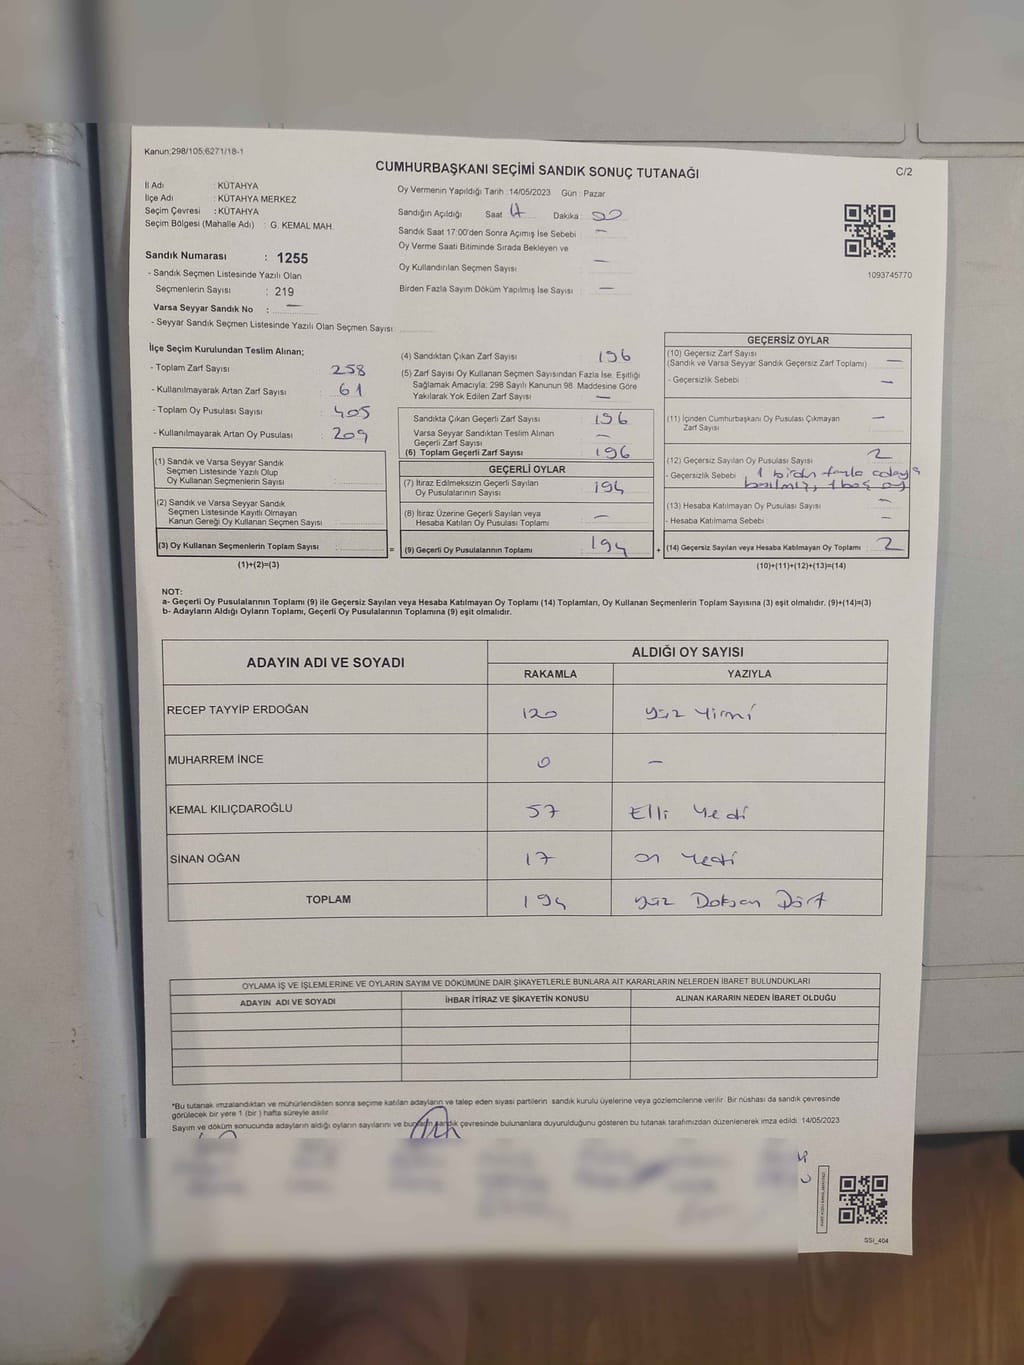 Kanun:298/105;6271/18-1
CUMHURBAŞKANI SEÇİMİ SANDIK SONUÇ TUTANAĞI
C/2
İl Adı : KÜTAHYA
İlçe Adı : KÜTAHYA MERKEZ
Seçim Çevresi : KÜTAHYA
Seçim Bölgesi (Mahalle Adı) : G. KEMAL MAH.
Oy Vermenin Yapıldığı Tarih :14/05/2023 Gün : Pazar
Sandığın Açıldığı Saat 17 Dakika : 00
Sandık Saat 17:00'den Sonra Açımış İse Sebebi —
Oy Verme Saati Bitiminde Sırada Bekleyen ve
Oy Kullandırılan Seçmen Sayısı —
Birden Fazla Sayım Döküm Yapılmış İse Sayısı : —
1093745770
Sandık Numarası : 1255
- Sandık Seçmen Listesinde Yazılı Olan
Seçmenlerin Sayısı : 219
Varsa Seyyar Sandık No : —
- Seyyar Sandık Seçmen Listesinde Yazılı Olan Seçmen Sayısı :
İlçe Seçim Kurulundan Teslim Alınan;
- Toplam Zarf Sayısı : 258
- Kullanılmayarak Artan Zarf Sayısı : 61
- Toplam Oy Pusulası Sayısı : 405
- Kullanılmayarak Artan Oy Pusulası : 209
(1) Sandık ve Varsa Seyyar Sandık
Seçmen Listesinde Yazılı Olup
Oy Kullanan Seçmenlerin Sayısı :
(2) Sandık ve Varsa Seyyar Sandık
Seçmen Listesinde Kayıtlı Olmayan
Kanun Gereği Oy Kullanan Seçmen Sayısı :
(3) Oy Kullanan Seçmenlerin Toplam Sayısı : =
(1)+(2)=(3)
(4) Sandıktan Çıkan Zarf Sayısı : 196
(5) Zarf Sayısı Oy Kullanan Seçmen Sayısından Fazla İse, Eşitliği
Sağlamak Amacıyla; 298 Sayılı Kanunun 98. Maddesine Göre
Yakılarak Yok Edilen Zarf Sayısı : —
Sandıkta Çıkan Geçerli Zarf Sayısı : 196
Varsa Seyyar Sandıktan Teslim Alınan
Geçerli Zarf Sayısı : —
(6) Toplam Geçerli Zarf Sayısı : 196
GEÇERLİ OYLAR
(7) İtiraz Edilmeksizin Geçerli Sayılan
Oy Pusulalarının Sayısı : 194
(8) İtiraz Üzerine Geçerli Sayılan veya
Hesaba Katılan Oy Pusulası Toplamı : —
(9) Geçerli Oy Pusulalarının Toplamı : 194 +
GEÇERSİZ OYLAR
(10) Geçersiz Zarf Sayısı
(Sandık ve Varsa Seyyar Sandık Geçersiz Zarf Toplamı) : —
- Geçersizlik Sebebi : —
(11) İçinden Cumhurbaşkanı Oy Pusulası Çıkmayan
Zarf Sayısı : —
(12) Geçersiz Sayılan Oy Pusulası Sayısı : 2
- Geçersizlik Sebebi : 1 birden fazla adaya
basılmış, 1 boş oy
(13) Hesaba Katılmayan Oy Pusulası Sayısı : —
- Hesaba Katılmama Sebebi : —
(14) Geçersiz Sayılan veya Hesaba Katılmayan Oy Toplamı : 2
(10)+(11)+(12)+(13)=(14)
NOT:
a- Geçerli Oy Pusulalarının Toplamı (9) ile Geçersiz Sayılan veya Hesaba Katılmayan Oy Toplamı (14) Toplamları, Oy Kullanan Seçmenlerin Toplam Sayısına (3) eşit olmalıdır. (9)+(14)=(3)
b- Adayların Aldığı Oyların Toplamı, Geçerli Oy Pusulalarının Toplamına (9) eşit olmalıdır.
ADAYIN ADI VE SOYADI
ALDIĞI OY SAYISI
RAKAMLA YAZIYLA
RECEP TAYYİP ERDOĞAN 120 yüz Yirmi
MUHARREM İNCE 0 —
KEMAL KILIÇDAROĞLU 57 Elli Yedi
SİNAN OĞAN 17 on Yedi
TOPLAM 194 yüz Doksan Dört
OYLAMA İŞ VE İŞLEMLERİNE VE OYLARIN SAYIM VE DÖKÜMÜNE DAİR ŞİKAYETLERLE BUNLARA AİT KARARLARIN NELERDEN İBARET BULUNDUKLARI
ADAYIN ADI VE SOYADI İHBAR İTİRAZ VE ŞİKAYETİN KONUSU ALINAN KARARIN NEDEN İBARET OLDUĞU
*Bu tutanak imzalandıktan ve mühürlendikten sonra seçime katılan adayların ve talep eden siyasi partilerin sandık kurulu üyelerine veya gözlemcilerine verilir. Bir nüshası da sandık çevresinde
görülecek bir yere 1 (bir ) hafta süreyle asılır.
Sayım ve döküm sonucunda adayların aldığı oyların sayılarını ve bunların sandık çevresinde bulunanlara duyurulduğunu gösteren bu tutanak tarafımızdan düzenlenerek imza edildi. 14/05/2023
SSI_404